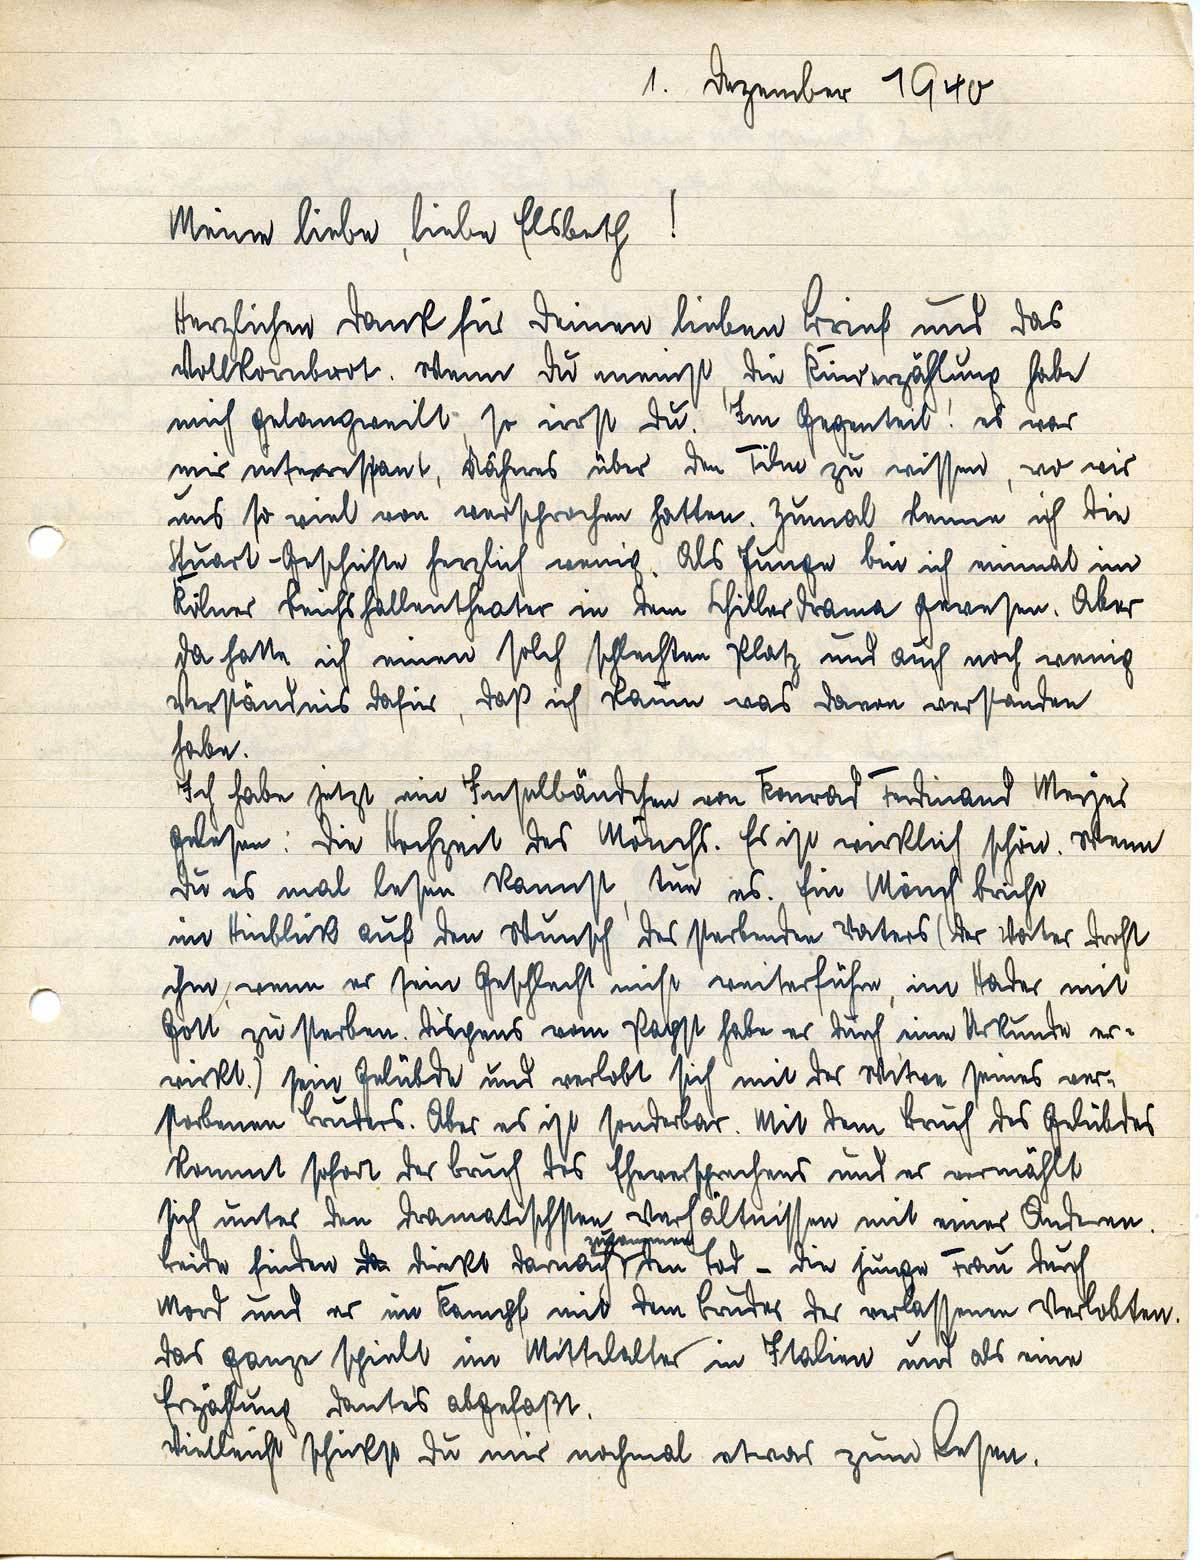 1. Dezember 1940
Meine liebe, liebe Elsbeth!
Herzlichen Dank für Deinen lieben Brief und das
Vollkornbrot. Wenn Du meinst, die Kinoerzählung habe
mich gelangweilt, so irrst Du. Im Gegenteil! es war
mir interressant, Näheres über den Film zu wissen, wo wir
uns so viel von versprochen hatten. Zumal kenne ich die
Stuart-Geschichte herzlich wenig. Als Junge bin ich einmal im
Kölner Reichshallentheater in dem Schillerdrama gewesen. Aber
da hatte ich einen solch schlechten Platz und auch noch wenig
Verständnis dafür, daß ich kaum was davon verstanden
habe.
Ich habe jetzt ein Inselbändchen von Konrad Ferdinand Meyer
gelesen: Die Hochzeit des Mönchs. Es ist wirklich schön. Wenn
Du es mal lesen kannst, tue es. Ein Mönch bricht
im Hinblick auf den Wunsch des sterbenden Vaters (der Vater droht
ihm, wenn er sein Geschlecht nicht weiterführe, im Hader mit
Gott zu sterben. Dispens vom Papst habe er durch eine Urkunde er-
wirkt.) sein Gelübde und verlobt sich mit der Witwe seines ver-
storbenen Bruders. Aber es ist sonderbar. Mit dem Bruch des Gelübdes
kommt sofort der Bruch des Eheversprechens und er vermählt
sich unter den dramatischsten Verhältnissen mit einer Anderen.
Beide finden direkt darnach zusammen den Tod - die junge Frau durch
Mord und er im Kampf mit dem Bruder der verlassenen Verlobten.
Das ganze spielt im Mittelalter in Italien und als eine
Erzählung Dante's abgefaßt.
Vielleicht schickst Du mir nochmal etwas zum Lesen.